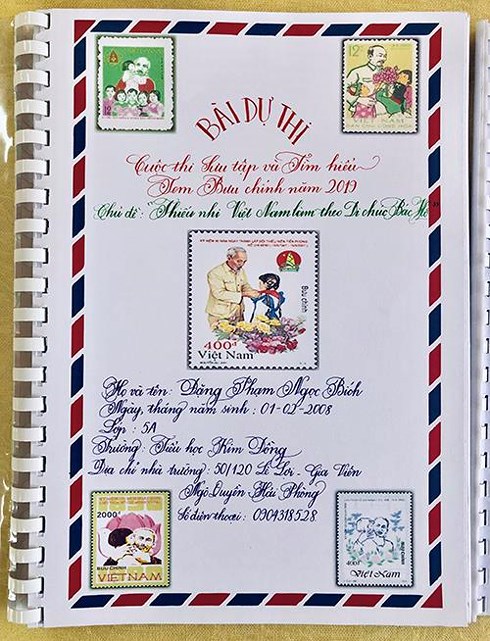 BÀI DỰ THI
Cuộc thi Sưu tập và Tìm hiểu
Tem Bưu chính năm 2019
Chủ đề: "Thiếu nhi Việt Nam làm theo Di chúc Bác Hồ"
Bưu chính
400đ
Việt Nam
Họ và tên: Đặng Phạm Ngọc Bích
Ngày, tháng năm sinh: 01-02-2008
Lớp : 5A
Trường: Tiểu học Kim Đồng
Địa chỉ nhà trường: 50/120 Lê Lợi - Gia Viên
Ngô Quyền Hải Phòng
Số điện thoại: 0904318528
2000đ
BƯU CHÍNH
VIỆTNAM
400đ
Việt Nam